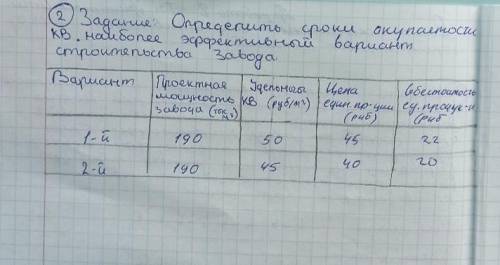 ② Задание: Определить сроки окупаемости
КВ. наиболее эффективный вариант
строительства завода
Вариант | Проектная мощность завода | Удельный КВ (руб/м³) | Цена един. пр-ции (руб) | себестоимость ед. продук-и (руб
1-й | 190 | 50 | 45 | 22
2-й | 190 | 45 | 40 | 20